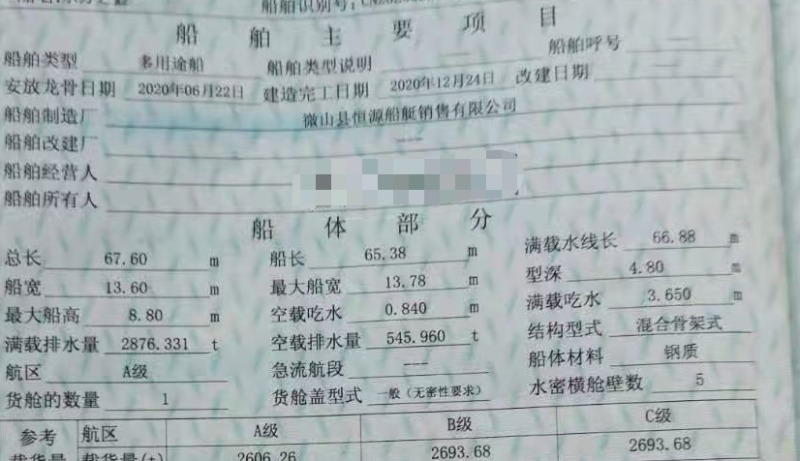 船舶识别号:
船舶主要项目
船舶类型 多用途船 船舶类型说明 —— 船舶呼号
安放龙骨日期 2020年06月22日 建造完工日期 2020年12月24日 改建日期
船舶制造厂 微山县恒源船艇销售有限公司
船舶改建厂 ——
船舶经营人
船舶所有人
船体部分
总长 67.60 m 船长 65.38 m 满载水线长 66.88 m
船宽 13.60 m 最大船宽 13.78 m 型深 4.80 m
最大船高 8.80 m 空载吃水 0.840 m 满载吃水 3.650 m
满载排水量 2876.331 t 空载排水量 545.960 t 结构型式 混合骨架式
航区 A级 急流航段 --- 船体材料 钢质
货舱的数量 1 货舱盖型式 一般（无密性要求） 水密横舱壁数 5
参考 航区 A级 B级 C级
载货量 载货量(t) 2606.26 2693.68 2693.68